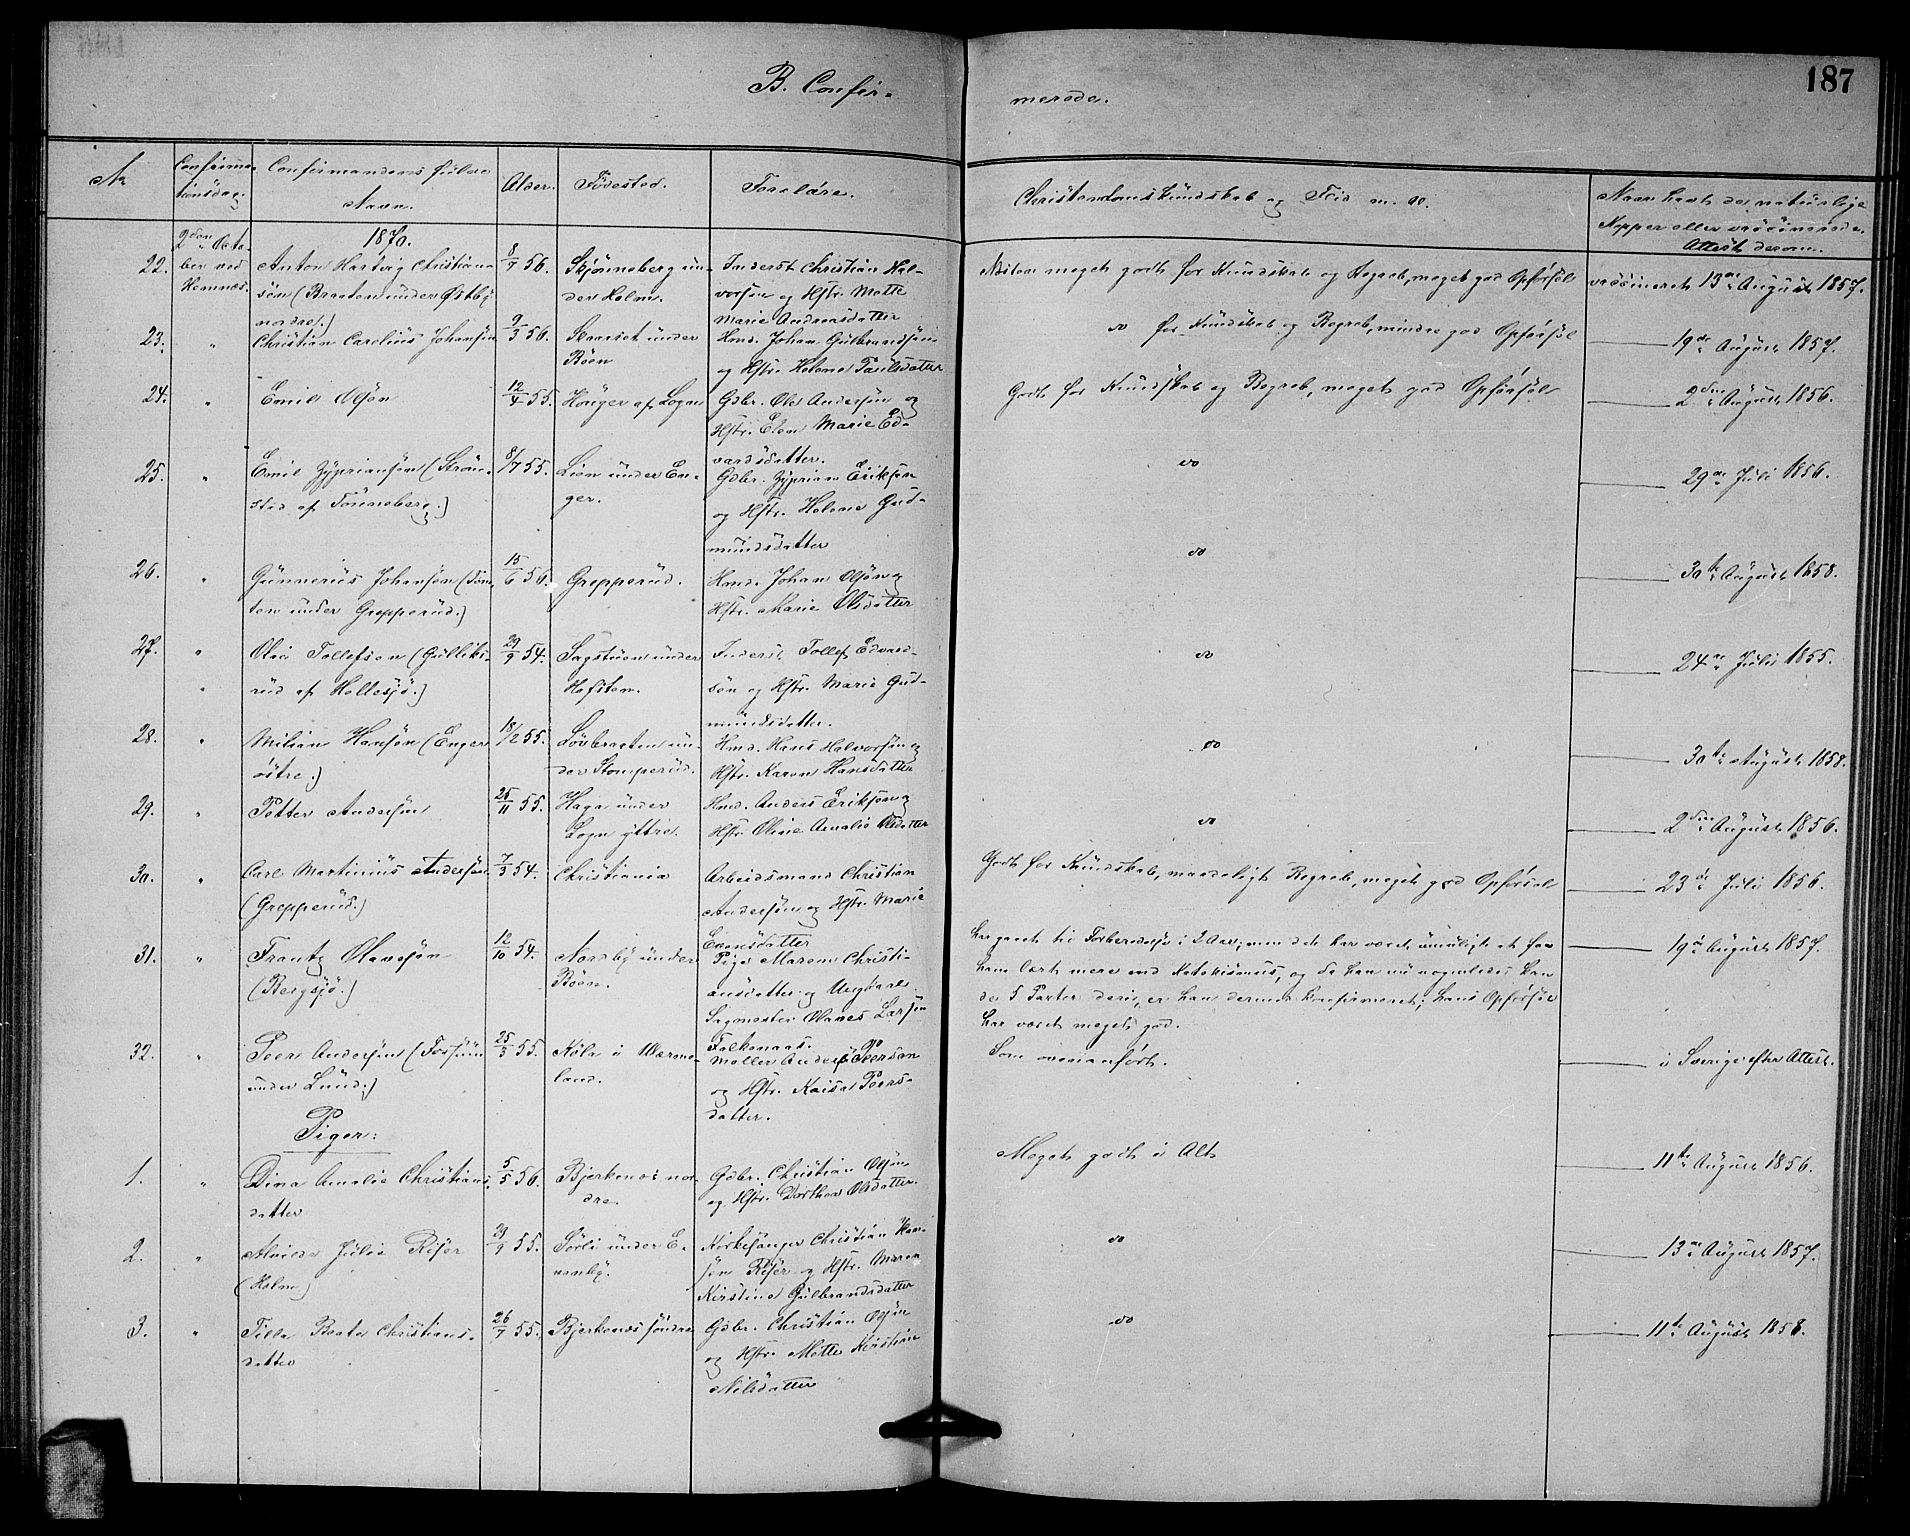 187
B. Confir-
merede.
No
Confirma-
tionsdag.
Confirmandens fulde
Navn.
Alder.
Fødested.
Forældre.
Christendomskundskab og Flid m. v.
Naar havt de naturlige
Kopper eller vaccinerede.
Attest derom.
1870.
22.
2den Octo-
ber ved
Hemnæs.
Anton Hartvig Christian-
sön (Braaten under Østby
nordre.)
8/7 56.
Skjønneberg un-
der Holm.
Inderst Christian Hal-
vorsøn og Hstr. Mette
Marie Andreasdatter
Næsten meget godt for Kundskab og Begreb, meget god Opførsel
vaccineret 13de August 1857.
23.
"
Christian Carelius Johansen
9/3 56.
under
Böen
Hmd. Johan Gulbrandsen
og Hstr. Helene Paulsdatter
do for Kundskab og Begreb, mindre god Opførsel
19de August 1857.
24.
"
Emil Olsön
12/4 55.
Hönger af Logn
Gdbr. Ole Andersön og
Hstr. Elen Marie Ed-
vardsdatter.
Godt for Kundskab og Begreb, meget god Opførsel
2den August 1856.
25.
"
Emil Zypriansön (Ström-
stad af Tönneberg.)
8/7 55.
Lien under En-
ger.
Gdbr. Zyprian Eriksen
og Hstr. Helene Gud-
mundsdatter
do
29de Juli 1856.
26.
"
Gunnerius Johansen (Töm-
ten under Grepperud.)
15/6 56.
Grepperud.
Hmd. Johan Olsön og
Hstr. Marie Olsdatter
do
30te August 1858.
27.
"
Ole Tollefsen (Gulliks-
rud af Hellesjö.)
29/9 54.
Sagstuen under
Hofsten.
Inderst Tollef Edvard-
sön og Hstr. Marie Gud-
mundsdatter.
do
24de Juli 1855.
28.
"
Milian Hansön (Enger
östre.)
18/2 55.
Lövbraaten un-
der Stomperud.
Hmd. Hans Halvorsön og
Hstr. Karen Hansdatter
do
30te August 1858.
29.
"
Petter Andersön
25/11 55.
Haga under
Logn yttre.
Hmd. Anders Eriksen og
Hstr. Oline Amalie Olsdatter
do
2den August 1856.
30.
"
Carl Martinius Andersön
(Grepperud.)
7/3 54.
Christiania
Arbeidsmand Christian
Andersön og Hstr. Marie
Evensdatter
Godt for Kundskab, maadeligt Begreb, meget god Opførsel
23de Juli 1856.
31.
"
Frantz Olavesön
(Bergsjö.)
12/10 54.
Nordby under
Böen.
Pige Maren Christi-
ansdatter og Ungkarl
Sagmester Olaves Larsön
Falkenaas.
har gaaet til Forberedelse i 2 Aar; men det har været umuligt at faa
ham lært mere end Katekismus, og da han nu nogenledes kan
de 5 Parter deri, er han dermed konfirmeret; hans Opførsel
har været meget god.
19de August 1857.
32.
"
Peer Andersön (Fossum
under Lund.)
25/3 55.
Köla i Værme-
land.
Møller Anders Peersen
og Hstr. Kaisa Peers-
datter.
Som ovenanført.
i Sverige efter Attest.
Piger:
1.
"
Dina Amalie Christians-
datter
5/5 56.
Bjerkenæs nor-
dre.
Gdbr. Christian Olsön
og Hstr. Dorthea Olsdatter.
Meget godt i Alt
11te August 1856.
2.
"
Alvilde Julie Riser
(Holm)
29/9 55.
Sörli under E-
nenby.
Kirkesanger Christian Han-
sön Riser og Hstr. Maren
Kirstine Gulbrandsdatter
do
13de August 1857.
3.
"
Tilla Beate Christians-
datter
26/7 55.
Bjerkenæs söndre
Gdbr. Christian Olsön
og Hstr. Mette Kirstine
Nilsdatter
do
11te August 1858.